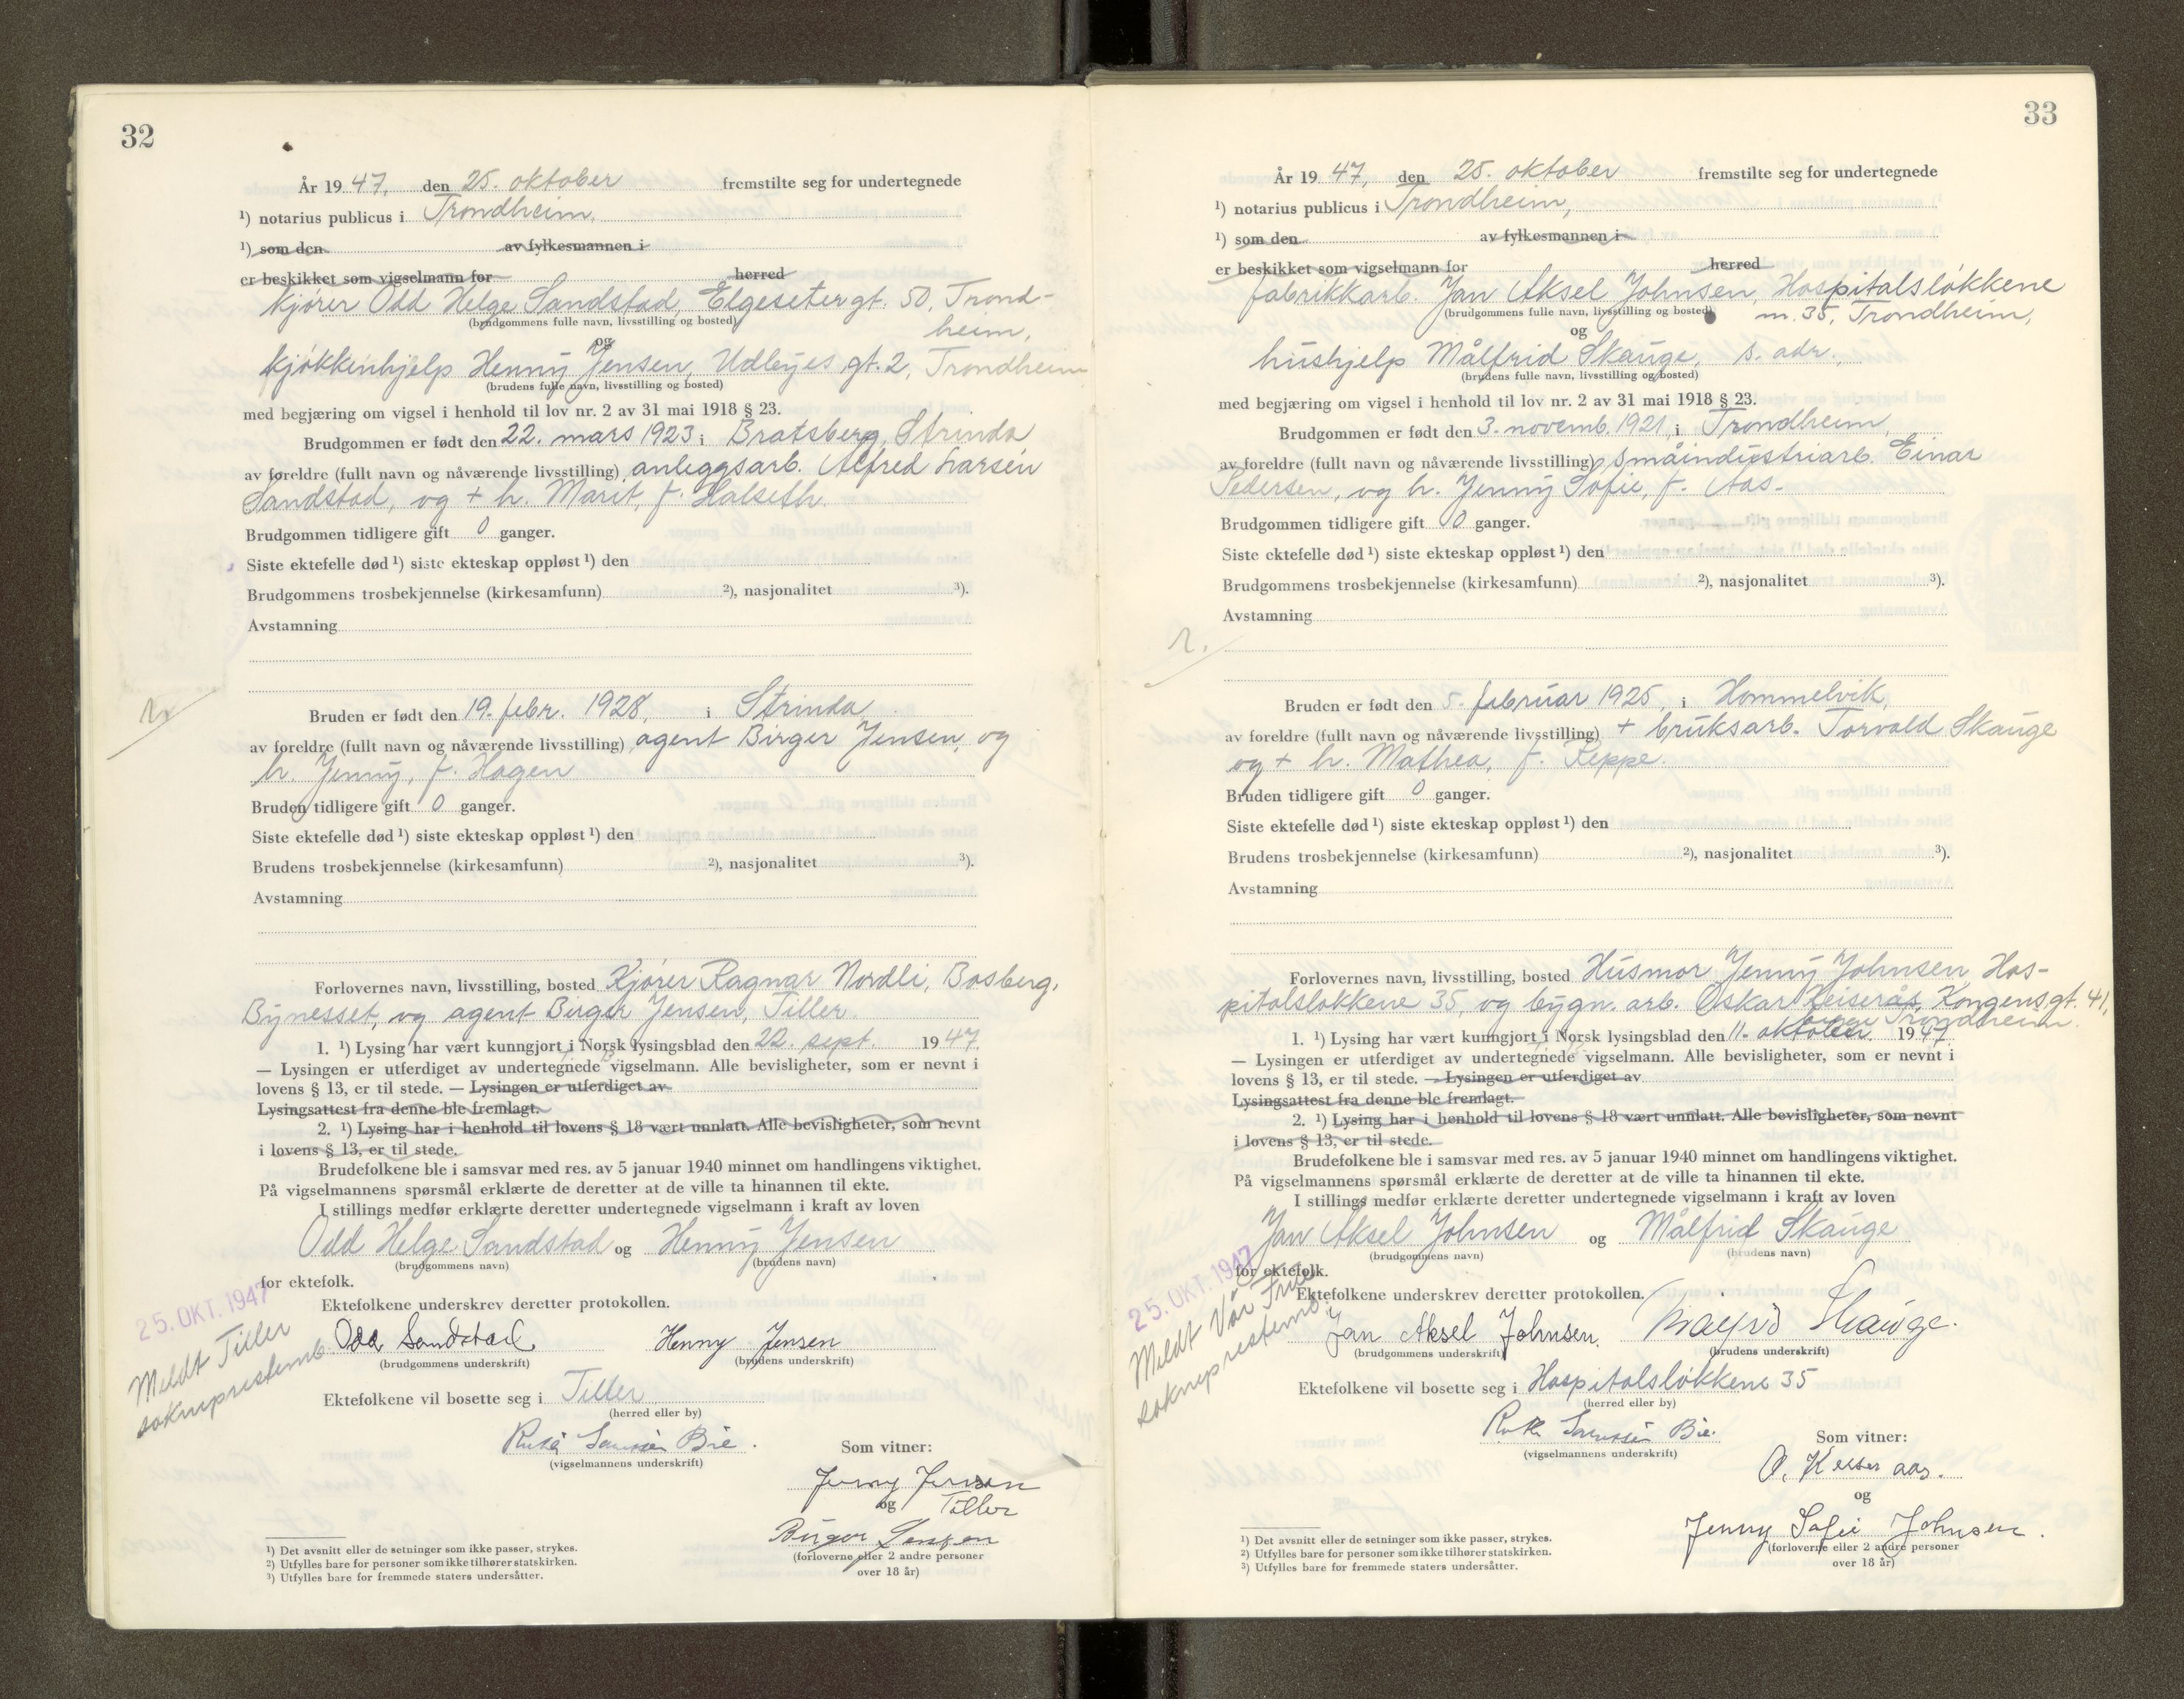 32
År 19 47, den 25. oktober fremstilte seg for undertegnede
¹) notarius publicus i Trondheim,
¹) som den av fylkesmannen i
er beskikket som vigselmann for herred
kjører Odd Helge Sandstad, Elgesetergt. 50, Trond-
(brudgommens fulle navn, livsstilling og bosted)
heim,
og
kjøkkenhjelp Henny Jensen, Udbyes gt. 2, Trondheim
(brudens fulle navn, livsstilling og bosted)
med begjæring om vigsel i henhold til lov nr. 2 av 31 mai 1918 § 23.
Brudgommen er født den 22. mars 1923 i Bratsberg, Strinda
av foreldre (fullt navn og nåværende livsstilling) anleggsarb. Alfred Larsen
Sandstad, og + h. Marit, f. Halseth.
Brudgommen tidligere gift 0 ganger.
Siste ektefelle død ¹) siste ekteskap oppløst ¹) den
Brudgommens trosbekjennelse (kirkesamfunn) ²), nasjonalitet ³).
Avstamning
Bruden er født den 19. febr. 1928, i Strinda
av foreldre (fullt navn og nåværende livsstilling) agent Birger Jensen, og
h. Jenny, f. Hagen
Bruden tidligere gift 0 ganger.
Siste ektefelle død ¹) siste ekteskap oppløst ¹) den
Brudens trosbekjennelse (kirkesamfunn) ²), nasjonalitet ³).
Avstamning
Forlovernes navn, livsstilling, bosted Kjører Ragnar Nordli, Bosberg,
Bynesset, og agent Birger Jensen, Tiller.
1. ¹) Lysing har vært kunngjort i Norsk lysingsblad den 22. sept. 19 47.
— Lysingen er utferdiget av undertegnede vigselmann. Alle bevisligheter, som er nevnt i
lovens § 13, er til stede. — Lysingen er utferdiget av
Lysingsattest fra denne ble fremlagt.
2. ¹) Lysing har i henhold til lovens § 18 vært unnlatt. Alle bevisligheter, som nevnt
i lovens § 13, er til stede.
Brudefolkene ble i samsvar med res. av 5 januar 1940 minnet om handlingens viktighet.
På vigselmannens spørsmål erklærte de deretter at de ville ta hinannen til ekte.
I stillings medfør erklærte deretter undertegnede vigselmann i kraft av loven
Odd Helge Sandstad og Henny Jensen
(brudgommens navn) (brudens navn)
for ektefolk.
25. OKT. 1947
Meldt Tiller
sokneprestemb.
Ektefolkene underskrev deretter protokollen.
Odd Sandstad Henny Jensen
(brudgommens underskrift) (brudens underskrift)
Ektefolkene vil bosette seg i Tiller
(herred eller by)
(vigselmannens underskrift)
Som vitner:
Jenny Jensen
og Tiller
Birger Jensen
(forloverne eller 2 andre personer
over 18 år)
¹) Det avsnitt eller de setninger som ikke passer, strykes.
²) Utfylles bare for personer som ikke tilhører statskirken.
³) Utfylles bare for fremmede staters undersåtter.
33
År 19 47, den 25. oktober fremstilte seg for undertegnede
¹) notarius publicus i Trondheim,
¹) som den av fylkesmannen i
er beskikket som vigselmann for herred
fabrikkarb. Jan Aksel Johnsen, Hospitalsløkkene
(brudgommens fulle navn, livsstilling og bosted) nr. 35, Trondheim,
og
hushjelp Målfrid Skauge, s. adr.,
(brudens fulle navn, livsstilling og bosted)
med begjæring om vigsel i henhold til lov nr. 2 av 31 mai 1918 § 23.
Brudgommen er født den 3. novemb. 1921, i Trondheim,
av foreldre (fullt navn og nåværende livsstilling) småindustriarb. Einar
Pedersen, og h. Jenny Sofie, f. Aas.
Brudgommen tidligere gift 0 ganger.
Siste ektefelle død ¹) siste ekteskap oppløst ¹) den
Brudgommens trosbekjennelse (kirkesamfunn) ²), nasjonalitet ³).
Avstamning
Bruden er født den 5. februar 1925, i Hommelvik,
av foreldre (fullt navn og nåværende livsstilling) + bruksarb. Torvald Skauge
og + h. Mathea, f. Reppe.
Bruden tidligere gift 0 ganger.
Siste ektefelle død ¹) siste ekteskap oppløst ¹) den
Brudens trosbekjennelse (kirkesamfunn) ²), nasjonalitet ³).
Avstamning
Forlovernes navn, livsstilling, bosted Husmor Jenny Johnsen, Hos-
pitalsløkkene 35, og bygn. arb. Oskar Keiserås, Kongensgt. 41,
Trondheim.
1. ¹) Lysing har vært kunngjort i Norsk lysingsblad den 11. oktober 19 47
— Lysingen er utferdiget av undertegnede vigselmann. Alle bevisligheter, som er nevnt i
lovens § 13, er til stede. — Lysingen er utferdiget av
Lysingsattest fra denne ble fremlagt.
2. ¹) Lysing har i henhold til lovens § 18 vært unnlatt. Alle bevisligheter, som nevnt
i lovens § 13, er til stede.
Brudefolkene ble i samsvar med res. av 5 januar 1940 minnet om handlingens viktighet.
På vigselmannens spørsmål erklærte de deretter at de ville ta hinannen til ekte.
I stillings medfør erklærte deretter undertegnede vigselmann i kraft av loven
Jan Aksel Johnsen og Målfrid Skauge
(brudgommens navn) (brudens navn)
for ektefolk.
25. OKT. 1947
Meldt Vår Frue
sokneprestemb.
Ektefolkene underskrev deretter protokollen.
Jan Aksel Johnsen. Målfrid Skauge.
(brudgommens underskrift) (brudens underskrift)
Ektefolkene vil bosette seg i Hospitalsløkkene 35
(herred eller by)
(vigselmannens underskrift)
Som vitner:
O. Keiseraas.
og
Jenny Sofie Johnsen.
(forloverne eller 2 andre personer
over 18 år)
¹) Det avsnitt eller de setninger som ikke passer, strykes.
²) Utfylles bare for personer som ikke tilhører statskirken.
³) Utfylles bare for fremmede staters undersåtter.